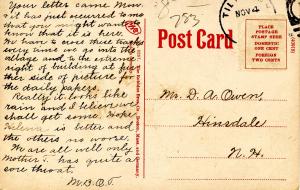 Your letter came Mon.
it has just occurred to me
that you might wish to
know that it is here.
We have to cross these tracks
every time we go into the
village and to the extreme
right of building at fur-
ther side of picture for
the daily papers.
Really it looks like
rain and I believe we
shall get some. Hope
Helena is better and
the others no worse.
We are all well only
Mother T. has quite a
sore throat.
M.B.O.T.
783
NOV 4
Post Card
PLACE
POSTAGE
STAMP HERE
DOMESTIC
ONE CENT
FOREIGN
TWO CENTS
Mr. D. A. Owen,
Hinsdale
N.H.